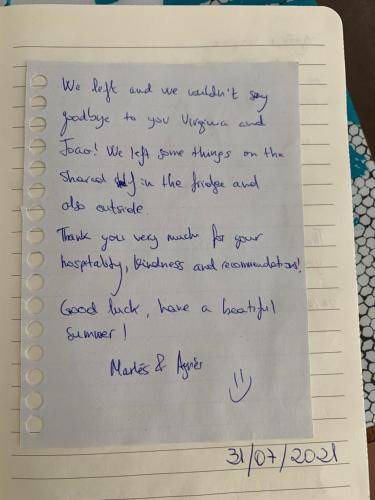 We left and we couldn't say
goodbye to you Virginia and
Joao! We left some things on the
shared in the fridge and
also outside.
Thank you very much for your
hospitality, kindness and recommendations!
Good luck, have a beatiful
summer!
& Agnès
31/07/2021